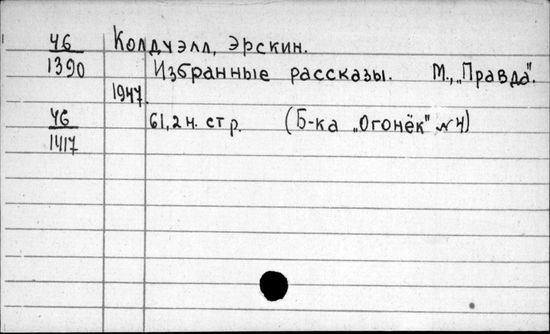 46 Колдуэлл, Эрскин.
1390 Избранные рассказы. М., „Правда".
1947.
46 61,2 н. стр. (Б-ка „Огонёк" №4)
1417